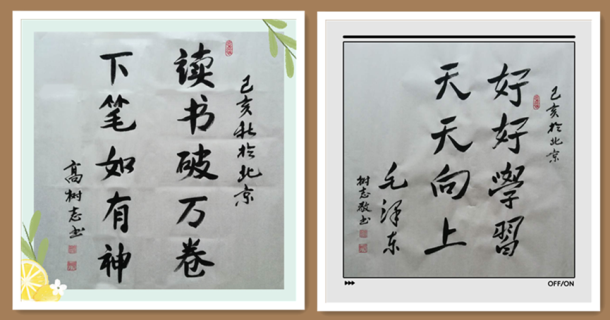 己亥秋於北京
读书破万卷
下笔如有神
高树志书
己亥於北京
好好學習
天天向上
毛泽东
树志敬书
OFF/ON